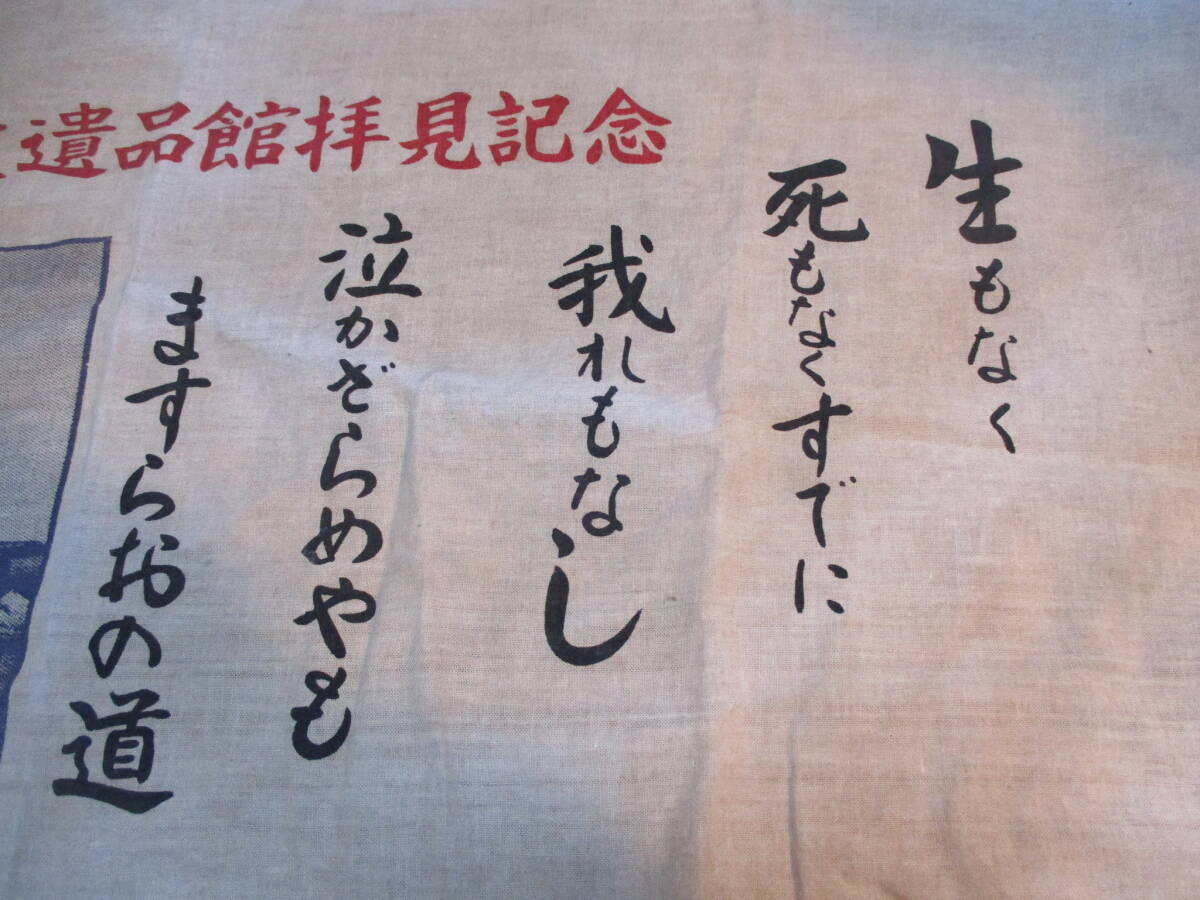 遺品館拝見記念
生もなく
死もなくすでに
我れもなし
泣かざらめやも
ますらおの道